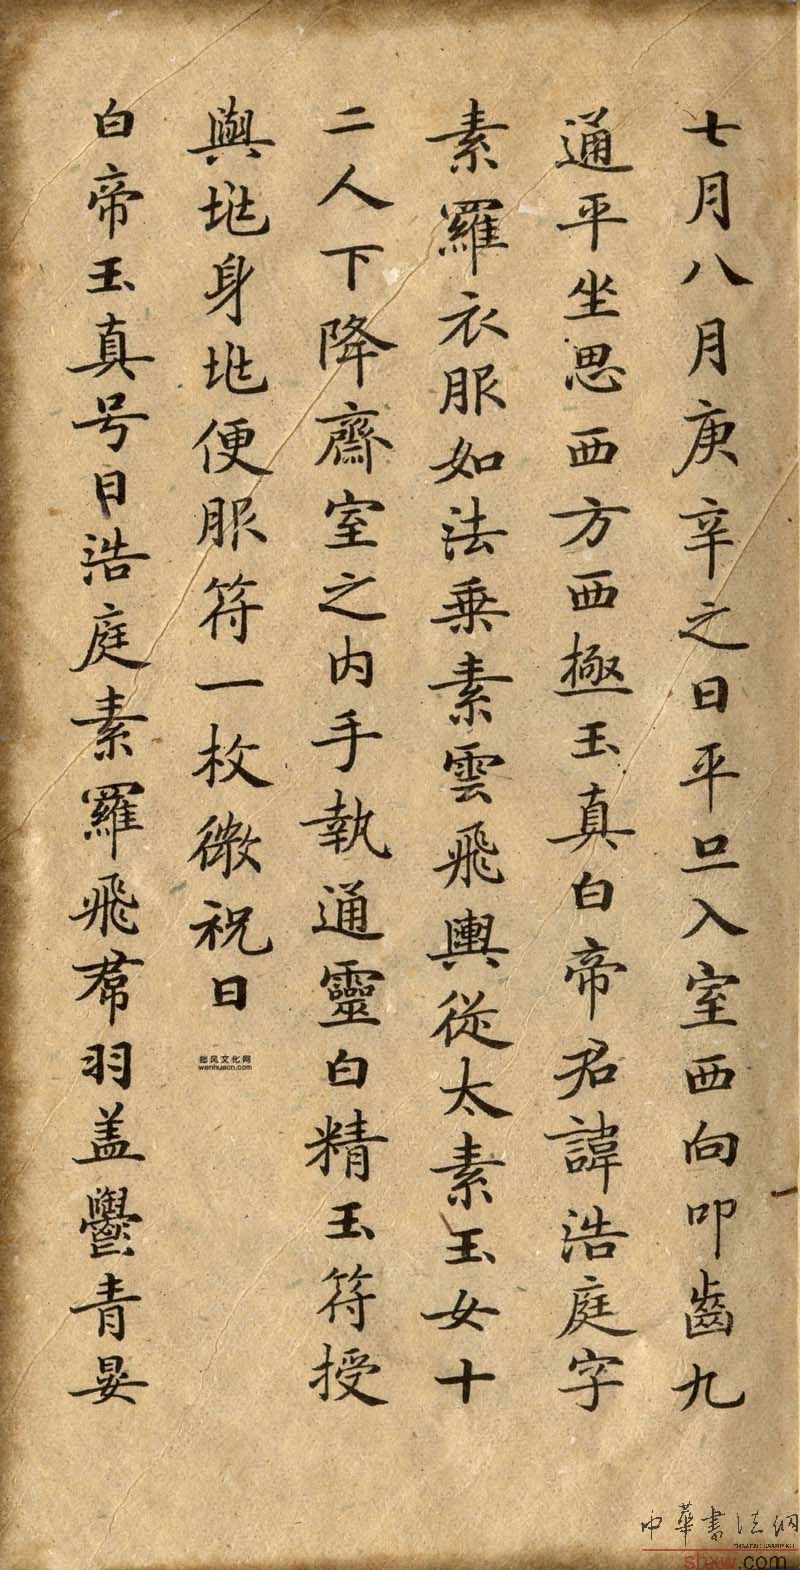 七月八月庚辛之日平旦入室西向叩齒九
通平坐思西方西極玉真白帝君諱浩庭字
素羅衣服如法乗素雲飛輿從太素玉女十
二人下降齋室之内手執通靈白精玉符授
與𡉟身𡉟便服符一枚微祝曰
白帝玉真号曰浩庭素羅飛帬羽盖鬱青晏
拙风文化网
wenhuacn.com
中華書法網
shxw.com